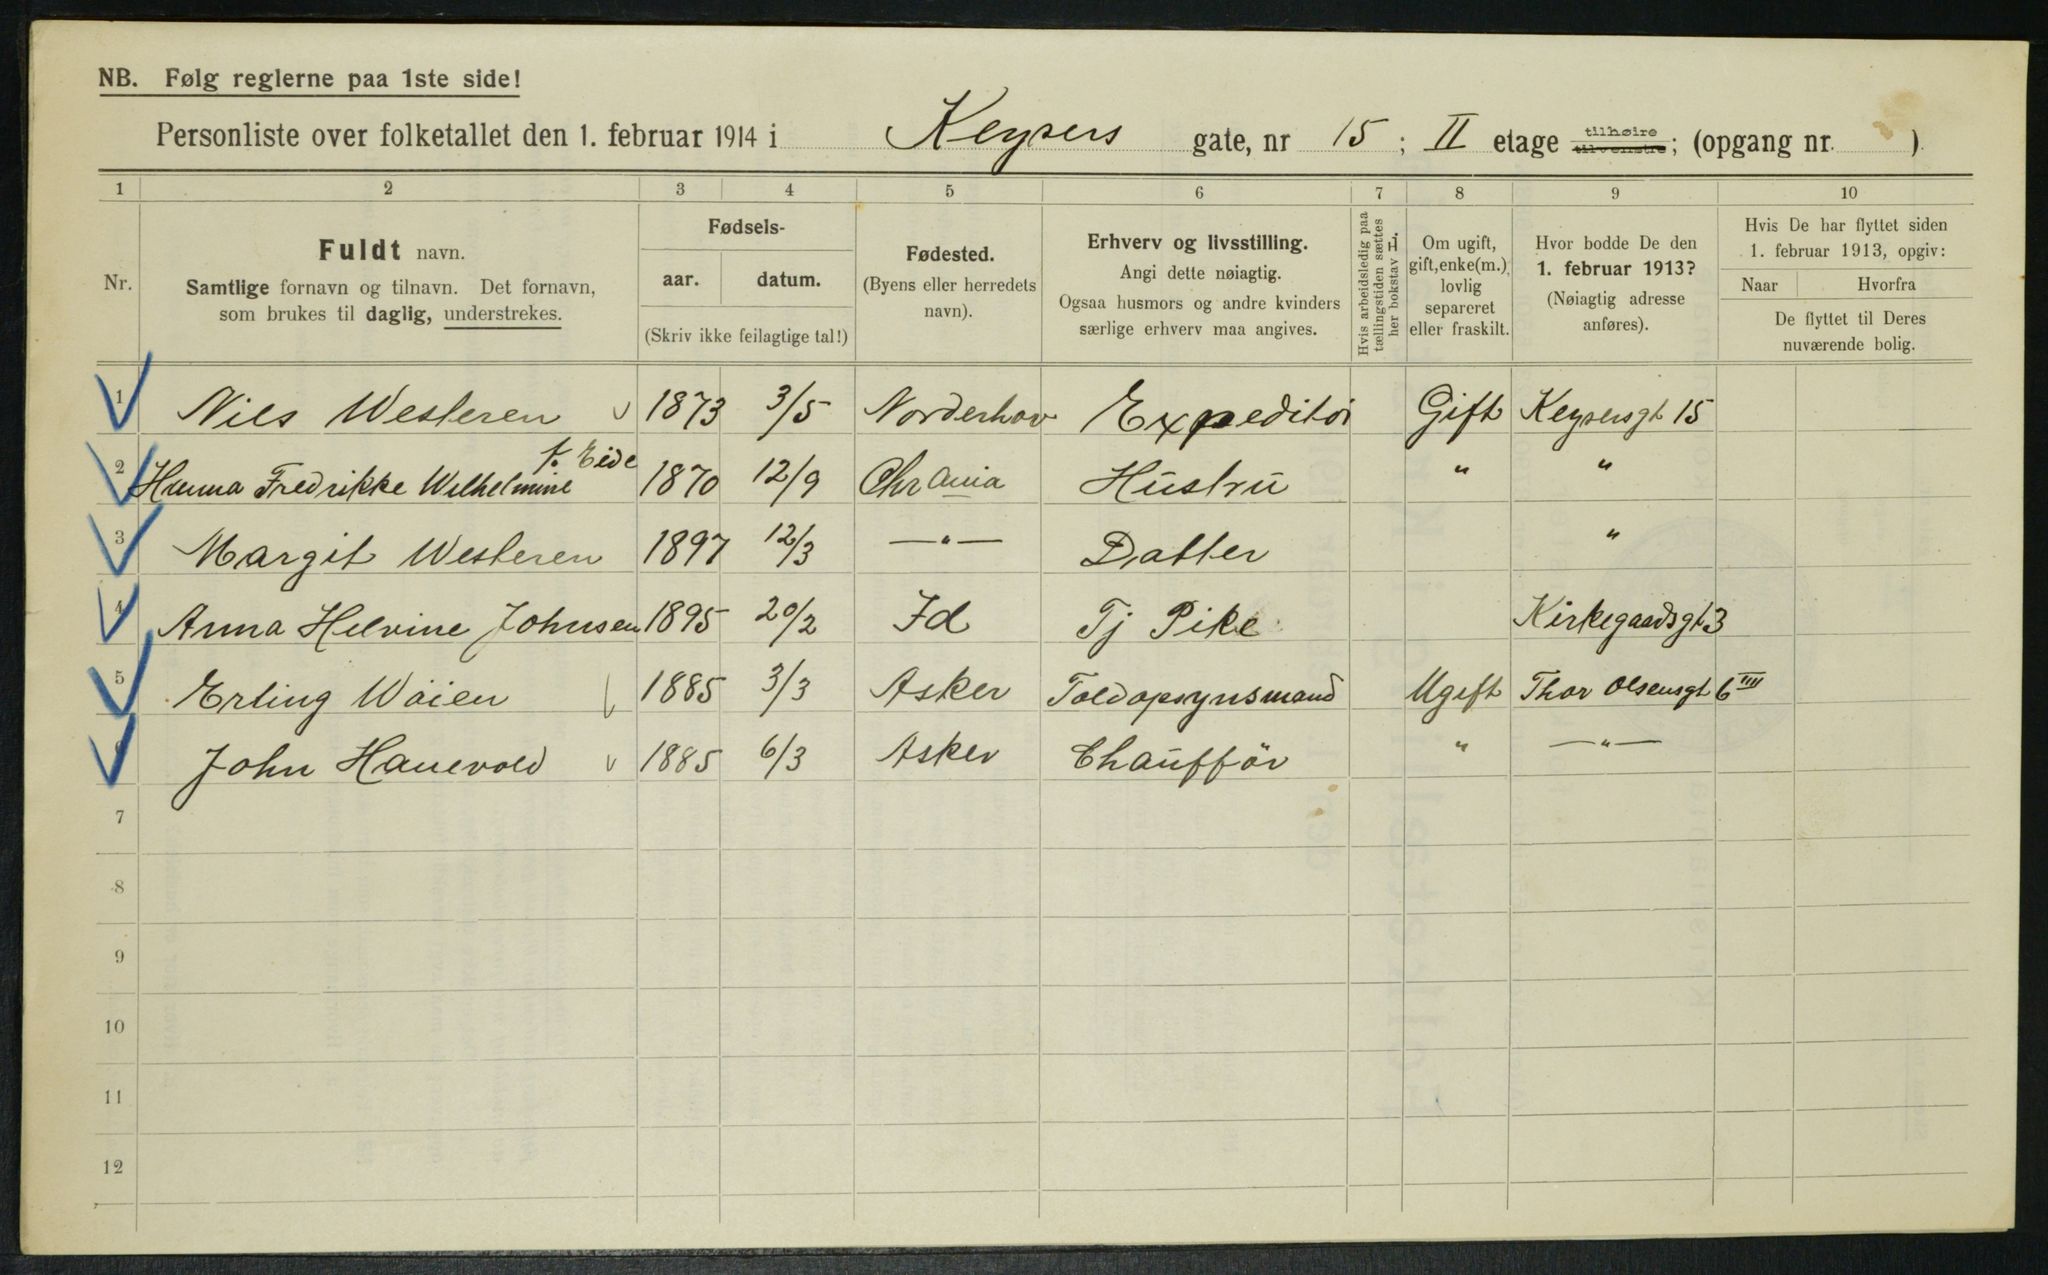 NB. Følg reglerne paa 1ste side!
Personliste over folketallet den 1. februar 1914 i Keysers gate, nr 15; II etage tilhøire tilvenstre; (opgang nr. )
1 2 3 4 5 6 7 8 9 10
Nr.
Fuldt navn.
Samtlige fornavn og tilnavn. Det fornavn,
som brukes til daglig, understrekes.
Fødsels-
aar. datum.
(Skriv ikke feilagtige tal!)
Fødested.
(Byens eller herredets
navn).
Erhverv og livsstilling.
Angi dette nøiagtig.
Ogsaa husmors og andre kvinders
særlige erhverv maa angives.
Hvis arbeidsledig paa
tællingstiden sættes
her bokstav L.
Om ugift,
gift, enke(m.)
lovlig
separeret
eller fraskilt.
Hvor bodde De den
1. februar 1913?
(Nøiagtig adresse
anføres).
Hvis De har flyttet siden
1. februar 1913, opgiv:
Naar Hvorfra
De flyttet til Deres
nuværende bolig.
1 Nils Westeren 1873 3/5 Norderhov Expeditør Gift Keysersgt 15
f. Eide
2 Hanna Fredrikke Wilhelmine 1870 12/9 Chrania Hustru " "
3 Margit Westeren 1897 12/3 —"— Datter "
4 Anna Helvine Johnsen 1895 20/2 Id Tj Pike Kirkegaardsgt 3
5 Erling Wøien 1885 3/3 Asker Toldopsynsmand Ugift Thor Olsensgt 6 IIII
6 John Hanevold 1885 6/3 Asker Chaufför " —"—
7
8
9
10
11
12